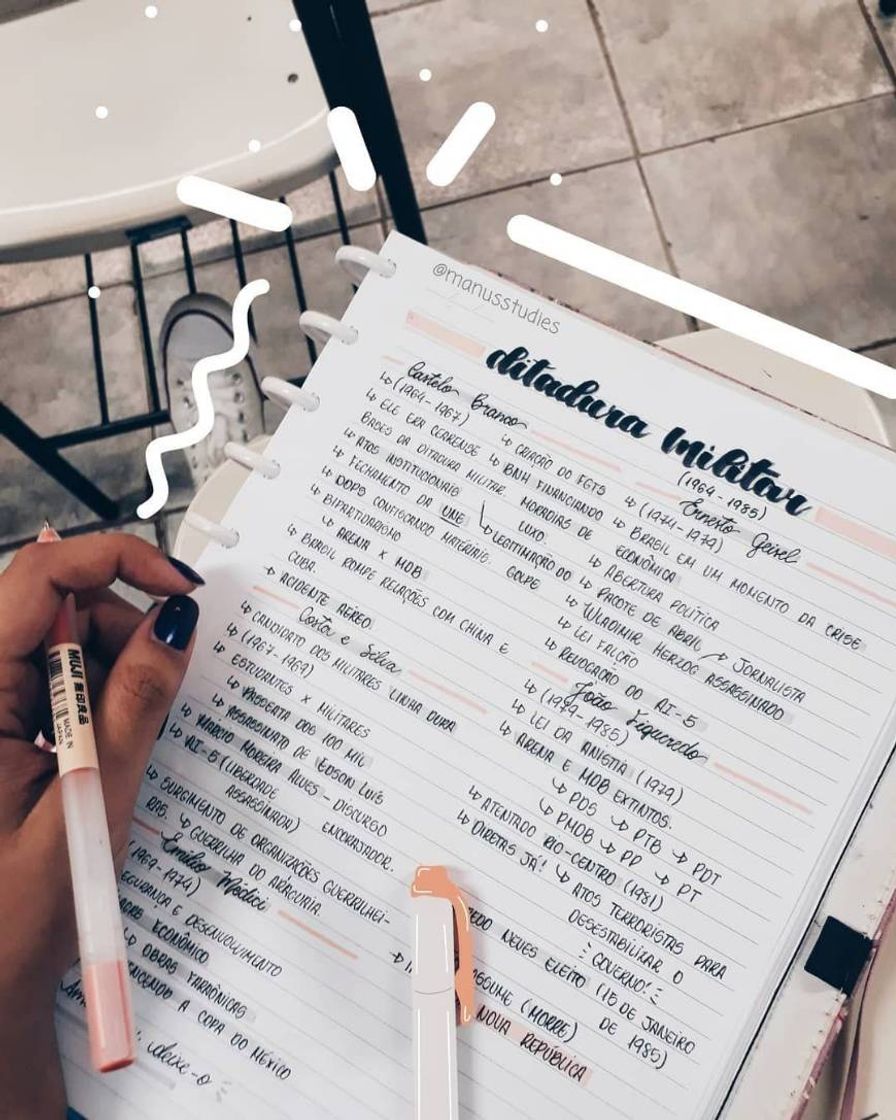 @manusstudies
ditadura militar
(1964 - 1985)
Castelo Branco
↳ (1964-1967)
↳ ELE ERA CEARENSE
BASES DA DITADURA MILITAR.
↳ ATOS INSTITUCIONAIS
↳ FECHAMENTO DA UNE
↳ DOPS CONFISCANDO MATERIAIS.
↳ BIPARTIDARISMO
↳ ARENA X MDB
↳ BRASIL ROMPE RELAÇÕES COM CHINA E
CUBA.
→ ACIDENTE AÉREO
↳ CRIAÇÃO DO FGTS
↳ BNH FINANCIANDO
MORADIAS DE
LUXO
↳ LEGITIMAÇÃO DO
GOLPE
Costa e Silva
↳ CANDIDATO DOS MILITARES LINHA DURA
↳ (1967-1969)
↳ ESTUDANTES X MILITARES
↳ PASSEATA DOS 100 MIL
↳ ASSASSINATO DE EDSON LUÍS
↳ MARCIO MOREIRA ALVES - DISCURSO
ENCORAJADOR.
↳ AI-5 (LIBERDADE
ASSASSINADA)
↳ SURGIMENTO DE ORGANIZAÇÕES GUERRILHEI-
RAS.
↳ GUERRILHA DO ARAGUAIA.
Emílio Médici
(1969-1974)
E DESENVOLVIMENTO
ECONÔMICO
↳ OBRAS FARAÔNICAS
A COPA DO MÉXICO
deixe-o
Ernesto Geisel
↳ (1974-1979)
↳ BRASIL EM UM MOMENTO DA CRISE
ECONÔMICA
↳ ABERTURA POLÍTICA
↳ PACOTE DE ABRIL
↳ WLADIMIR HERZOG ASSASSINADO
→ JORNALISTA
↳ LEI FALCÃO
↳ REVOGAÇÃO DO AI-5
João Figueredo
↳ (1979-1985)
↳ LEI DA ANISTIA (1979)
↳ ARENA E MDB EXTINTOS.
↳ PDS ↳ PTB → PDT
↳ PMDB → PP → PT
↳ ATENTADO RIO-CENTRO (1981)
↳ ATOS TERRORISTAS PARA
DESESTABILIZAR O
GOVERNO!
↳ DIRETAS JÁ!
NEVES ELEITO (15 DE JANEIRO
DE 1985)
ASSUME (MORRE)
NOVA REPÚBLICA
MUJI 無印良品
MADE IN
JAPAN